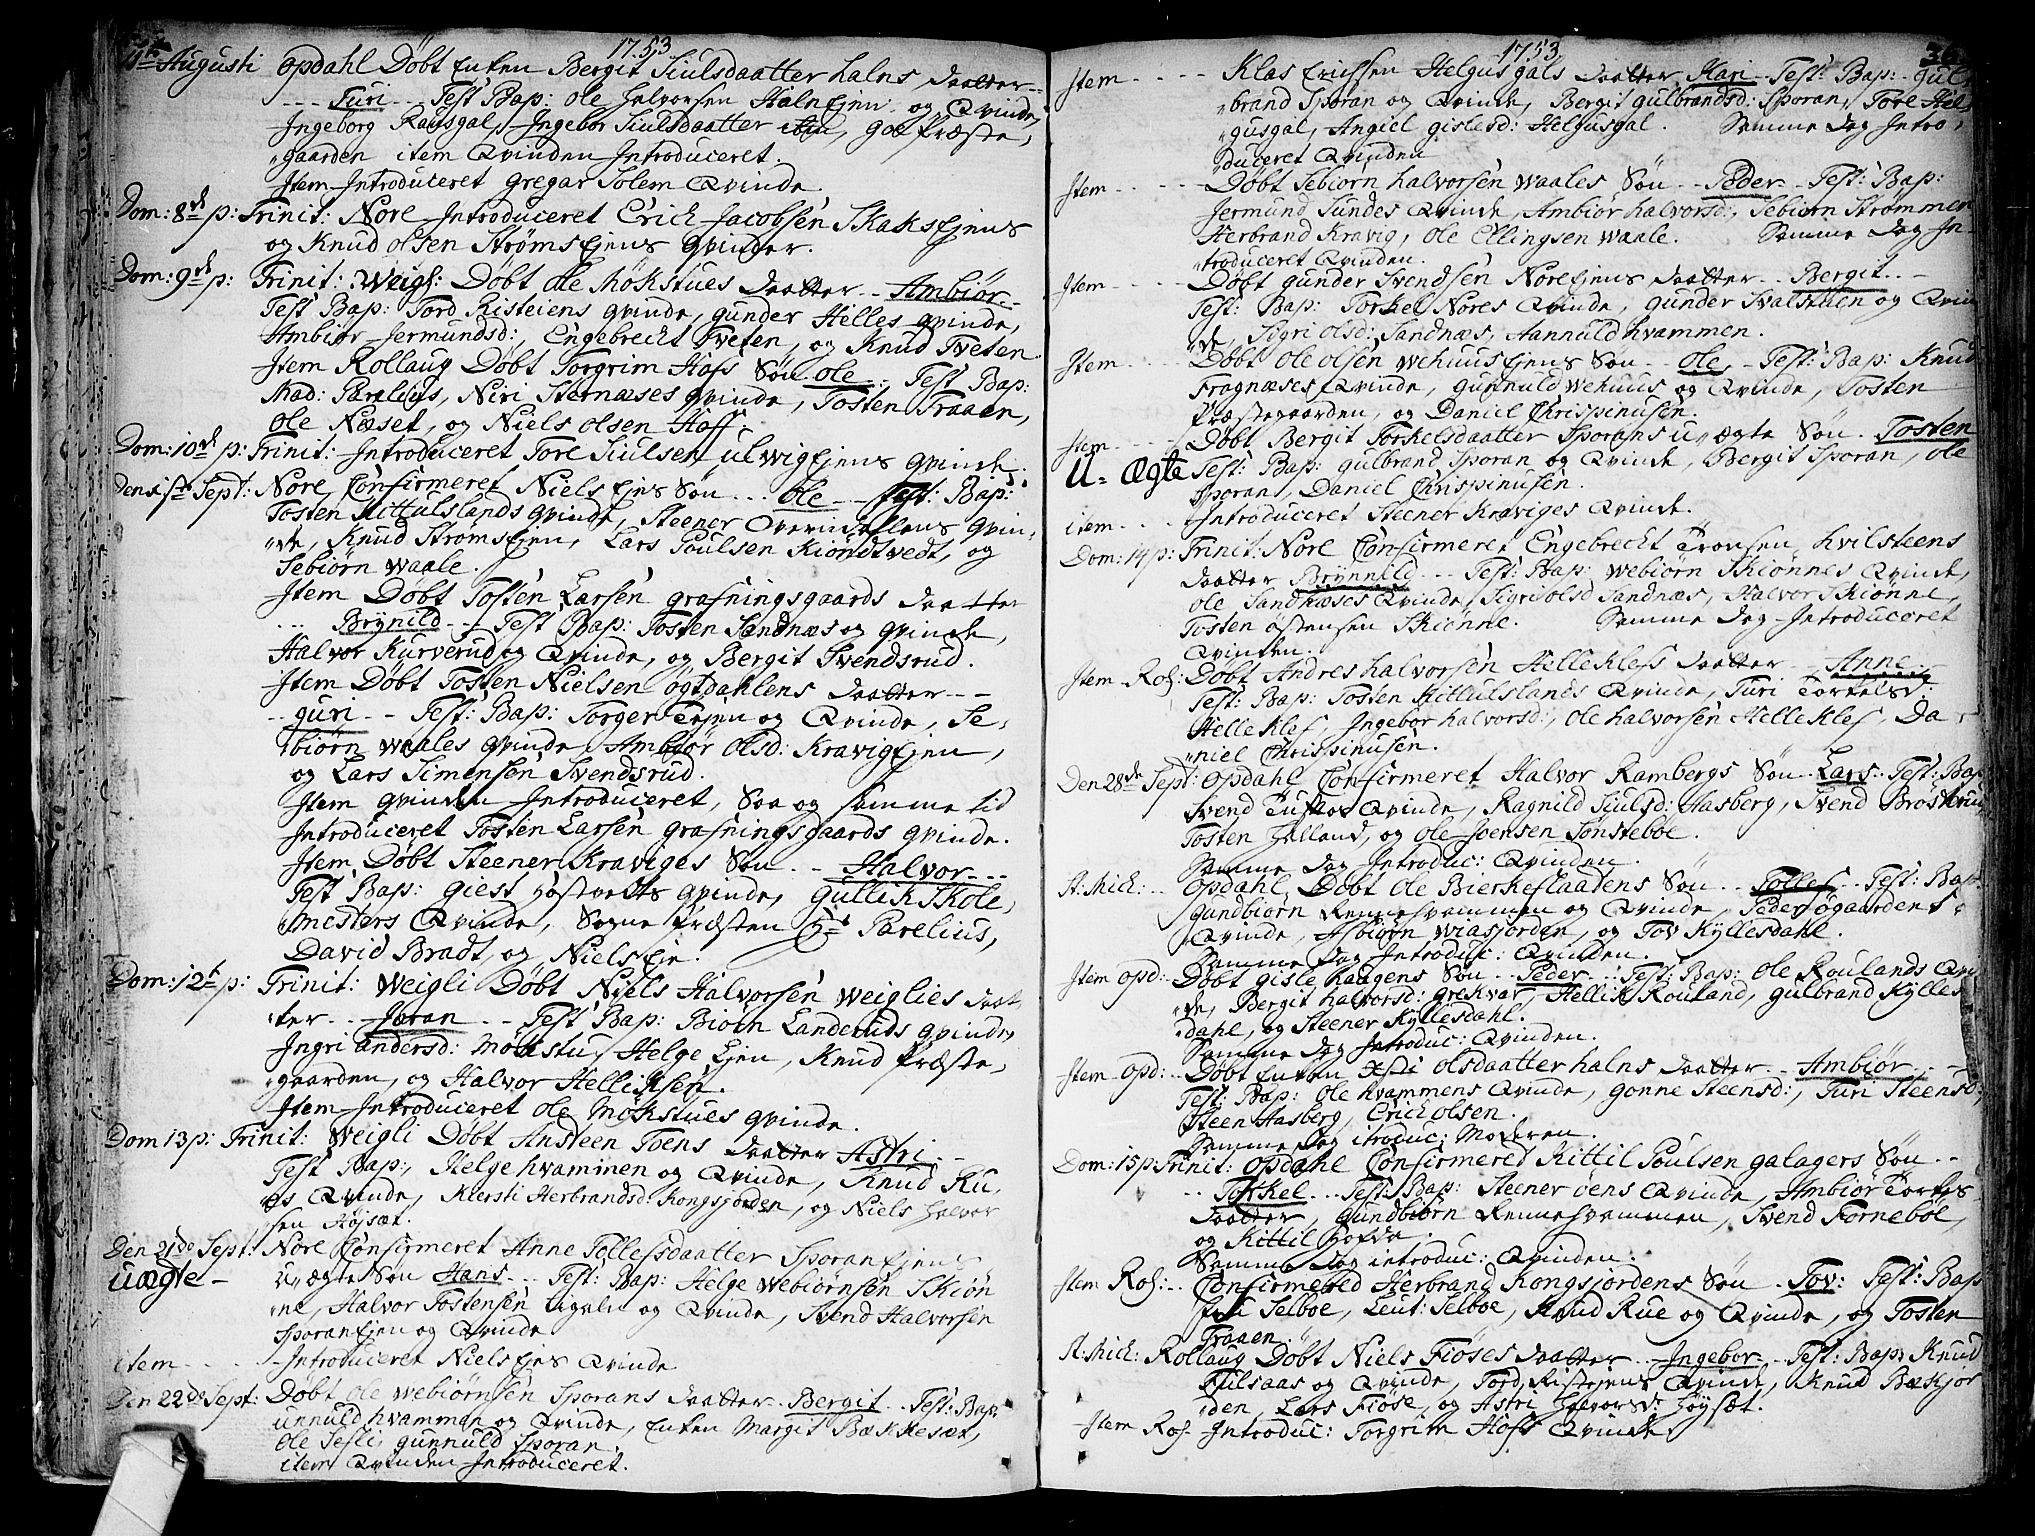 1753
Augusti Opdahl Døbt Enken Bergit Siulsdaatter halns daatter
Turi Test Bap: Ole Halvorsen Halnejen og Qvinde,
Ingeborg Rausgal, Ingebor Siulsdaatter ibid,
gaarden item Qvinden Introduceret.
Item Introduceret Gregar Solem Qvinde.
Dom: 8de p: Trinit: Nore Introduceret Erich Jacobsen Skaksejens
og Knud Olsen Strømsejens qvinder.
Dom: 9de p: Trinit: Weigl: Døbt Ole Mökstues daatter Ambiør
Test Bap: Tord Risteiens qvinde, Gunder Helles qvinde,
Ambiør Jermundsd:, Engebrecht Tveten, og Knud Tveten.
Item Rollaug Døbt Torgrim Hafs Søn Ole Test Bap:
Mad: Parelius, Niri Sternæses qvinde, Tosten Traaen,
Ole Næset, og Niels Olsen Hoff.
Dom: 10de p: Trinit: Introduceret Tore Siulsen Ulwigejens qvinde.
Den 1ste Sept: Nore Confirmeret Niels Ejes Søn Ole Test: Bap:
Tosten Kittulslands qvinde, Steener Overndallens qvin-
de, Knud Strømsejen, Lars Poulsen Kiöndtvedt, og
Sebiørn Waale.
Item Døbt Tosten Larsen grafningsgaards daatter
Brynild Test Bap: Tosten Sandnæs og qvinde,
Halvor Kurverud og Qvinde, og Bergit Svendsrud.
Item Døbt Tosten Nielsen Ogtdahlens daatter
Guri Test: Bap: Torger Ejen og Qvinde, Se-
biørn Waales qvinde, Ambiør Olsd: Kravigejen,
og Lars Simensen Svendsrud.
Item qvinden Introduceret, Saa og samme tid
Introduceret Tosten Larsen grafningsgaards qvinde.
Item Døbt Steener Kraviges Søn Halvor
Test Bap: Giest Hostvedts qvinde, Gullik Skole-
mesters Qvinde, Sogne Præsten Hr Parelius,
David Bradt, og Niels Eje.
Dom: 12te p: Trinit: Weigli Døbt Niels Halvorsen Weiglies daat-
ter Jøran Test Bap: Biørn Landeruds qvinde,
Ingri Andersd: Mökstu, Helge Ejen, Knud Præste-
gaarden, og Halvor Helliksen.
Item Introduceret Ole Mökstues qvinde.
Dom 13 p: Trinit: Weigli Døbt Ansteen Toens daatter Astri
Test Bap:, Helge Hvammen og Qvinde, Knud Ru-
es Qvinde, Kiersti Herbrandsd: Kongsjorden, og Niels Halvor
sen Højsæt.
Den 21de Sept: Nore Confirmeret Anne Tollefsdaatter Sporanejens
uægte u-ægte Søn Hans Test: Bap: Helge Webiørnsen Skiön
ne, Halvor Tostensen og Qvinde, Svend Halvorsen
Sporanejen og Qvinde
item Introduceret Niels Ejes Qvinde
Den 22de Sept: Døbt Ole Webiørnsen Sporans daatter Bergit Test: Bap:
unnuld Hvammen og Qvinde, Enken Margit Bækkesæt,
Ole Sefli, Gunnuld Sporan.
item Qvinden Introduceret.
1753
36
Item Klas Erichsen Helgusgals daatter Kari Test: Bap: Gul-
brand Sporan og Qvinde, Bergit Gulbrandsd: Sporan, Tore Hel-
gusgal, Angiel Gislesd: Helgusgal. Samme dag Intro-
duceret Qvinden
Item Døbt Sebiørn Halvorsen Waales Søn Peder Test: Bap:
Jermund Sundes Qvinde, Ambiør Halvorsd:, Sebiørn Strømmen
Herbrand Kravig, Ole Ellingsen Waale. Samme dag In-
troduceret Qvinden.
Item Døbt Gunder Svendsen Noreejens daatter Bergit
Test: Bap: Torkel Nores Qvinde, Gunder Svalsthen og Qvin
de, Sigri Olsd: Sandnæs, Aannuld Hvammen.
Item Døbt Ole Olsen Wehuusejens Søn Ole Test: Bap: Knud
Fragnæses Qvinde, Gunnuld Wehuus og Qvinde, Tosten
Præstegaarden, og Daniel Chrispinusen.
Item Døbt Bergit Torkelsdaatter Sporans u-ægte Søn Tosten
U-ægte Test: Bap: Gulbrand Sporan og Qvinde, Bergit Sporan, Ole
Sporan, Daniel Chrispinusen.
item Introduceret Steener Kraviges Qvinde.
Dom: 14 p: Trinit: Nore Confirmeret Engebrecht Tronsen Hvilsteens
daatter Brynnild Test: Bap: Webiørn Skionnes Qvinde,
Ole Sandnæses Qvinde, Sigri Olsd Sandnæs, Halvor Skiønne,
Tosten Östensen Skiönne. Samme dag Introduceret
Qvinden.
Item Rol: Døbt Andres Halvorsen Helleklefs daatter Anne
Test: Bap: Tosten Kittulslands Qvinde, Turi Torkelsd:
Helleklef, Ingebor Halvorsd:, Ole Halvorsen Helleklef, Da-
niel Chrispinusen.
Den 28de Sept: Opdahl Confirmeret Halvor Rambergs Søn Lars Test: Bap
Svend Tuftes Qvinde, Ragnild Siulsd: Hasberg, Svend Brøstrud,
Tosten Halland, og Ole Joensen Sønsteböe.
Samme dag Introduc: Qvinden.
St. Mich: Opdahl Døbt Ole Bierkeflaatens Søn Tollef Test: Bap:
Gundbiørn Rennehvammen og Qvinde, Peder Øgaardens
Qvinde, Asbiørn Wiasjorden, og Tov Kyllesdahl.
Samme dag Introduc: Qvinden.
Item Opd: Døbt Gisle Haagens Søn Peder Test: Bap: Ole Roulands Qvin
de, Bergit Halvorsd: Grekvar, Hellik Rouland, Gulbrand Kylles
dahl, og Steener Kyllesdahl.
Samme dag Introduc: Qvinden.
Item Opd: Døbt Enken Olsdaatter halns daatter Ambiør
Test: Bap: Ole Hvammens Qvinde, Gonne Steensd:, Turi Steensd:,
Steen Hasberg, Erich Olsen.
Samme dag itroduc: Moderen.
Dom: 15 p Trinit: Opdahl Confirmered Kittil Poulsen Galagers Søn
Torkel Test: Bap: Steener Öens Qvinde, Ambiør Torkels
daatter, Gundbiørn Rennehvammen, Svend Forneböe,
og Kittil Hofde.
Samme dag introduc: Qvinden.
Item Rol: Confirmered Herbrand Kongsjordens Søn Tov: Test: Bap
fru Selboe, Leut: Selboe, Knud Rue og Qvinde, og Tosten
Traaen.
St. Mich: Rollaug Døbt Niels Fiöses daatter Ingebor Test: Bap: Knud
Kulsaas og Qvinde, Tord Ristejens Qvinde, Knud Bækjor
den, Lars Fiöse, og Astri Halvorsd: Höysæt.
Item Rol Introduc: Torgrim Hofs Qvinde